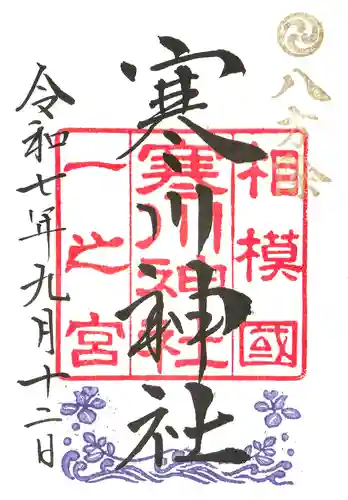 八方除
相模國
寒川神社
一之宮
寒川神社
令和七年九月十二日